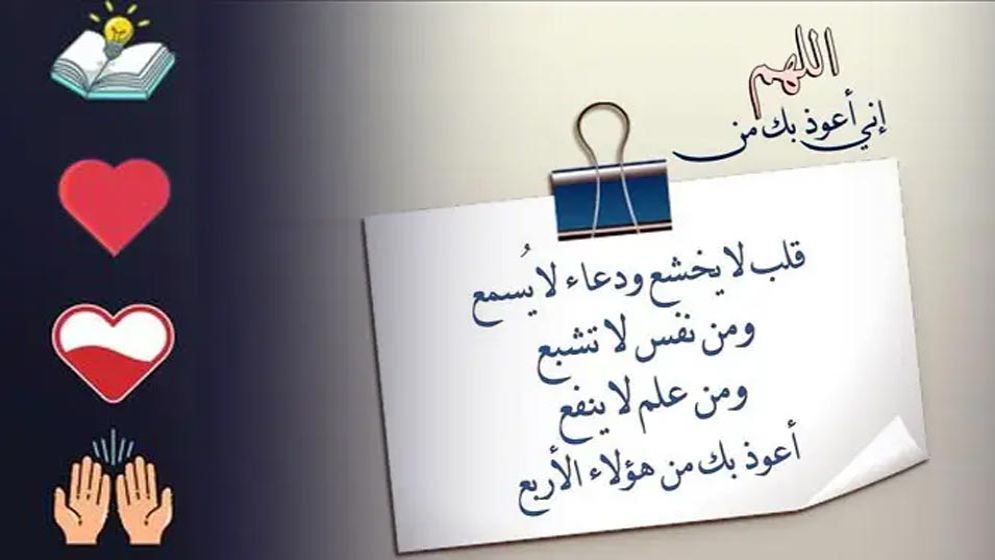 اللهم
إني أعوذ بك من
قلب لا يخشع ودعاء لا يُسمع
ومن نفس لا تشبع
ومن علم لا ينفع
أعوذ بك من هؤلاء الأربع